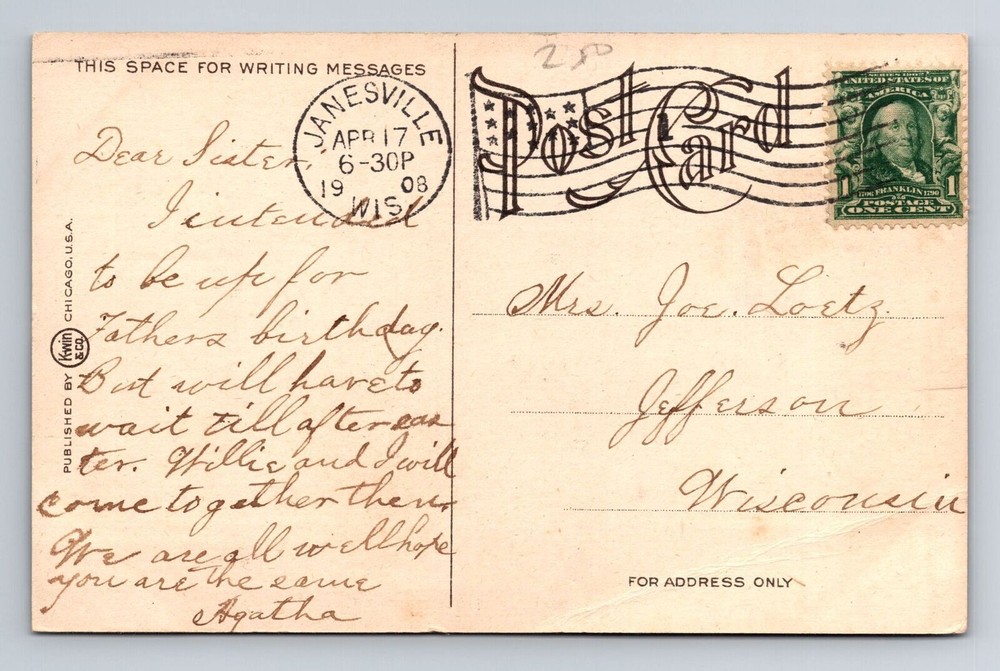 250
THIS SPACE FOR WRITING MESSAGES
JANESVILLE
APR 17
6-30P
1908
WIS.
Post Card
SERIES 1902
UNITED STATES OF
AMERICA
1 1706 FRANKLIN 1790 1
POSTAGE
ONE CENT
Dear Sister,
I intended
to be up for
Fathers birthday.
But will have to
wait till after eas
ter. Willie and I will
come together then.
We are all well hope
you are the same
Agatha
PUBLISHED BY Kwin & CO. CHICAGO, U.S.A.
Mrs. Joe. Loetz.
Jefferson
Wisconsin
FOR ADDRESS ONLY